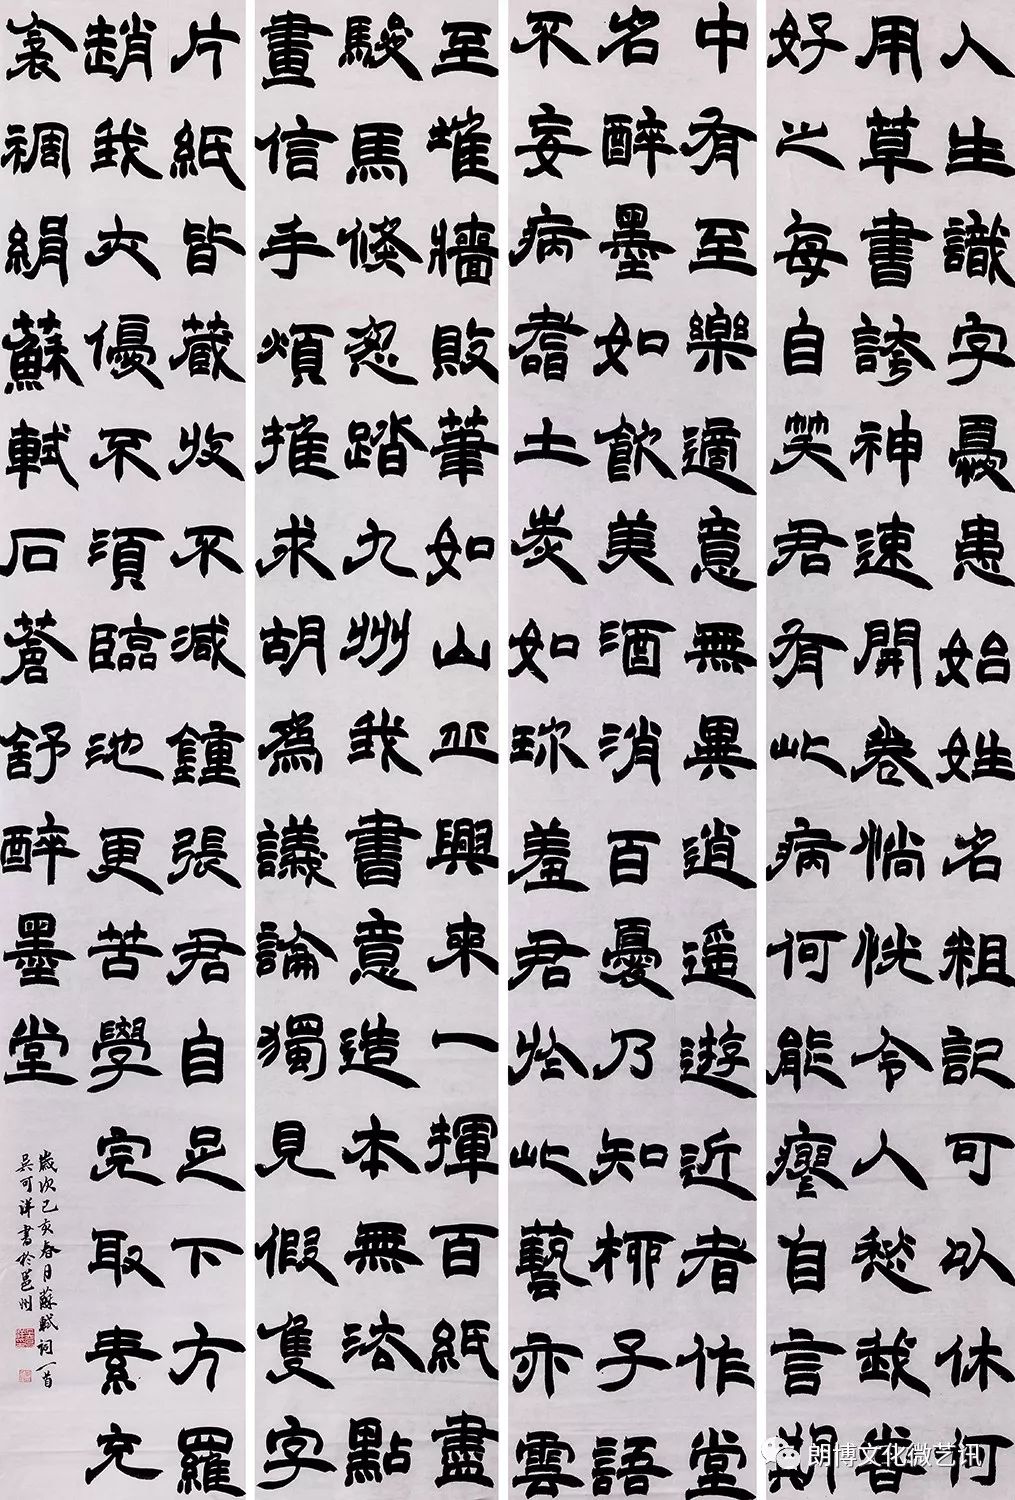 人生識字憂患始姓名粗記可以休何
用草書誇神速開卷惝恍令人愁我甞
好之每自笑君有此病何能瘳自言期
中有至樂適意無異逍遥遊近者作堂
名醉墨如飲美酒消百憂乃知柳子語
不妄病嗜土炭如珍羞君於此藝亦雲
至堆牆敗筆如山丘興來一揮百紙盡
駿馬倏忽踏九州我書意造本無法點
畫信手煩推求胡為議論獨見假隻字
片紙皆藏收不減鍾張君自足下方羅
趙我亦優不須臨池更苦學完取素充
衾裯絹蘇軾石蒼舒醉墨堂
歲次己亥春日蘇軾詞一首
吴可洋書於邕州
朗博文化微艺讯